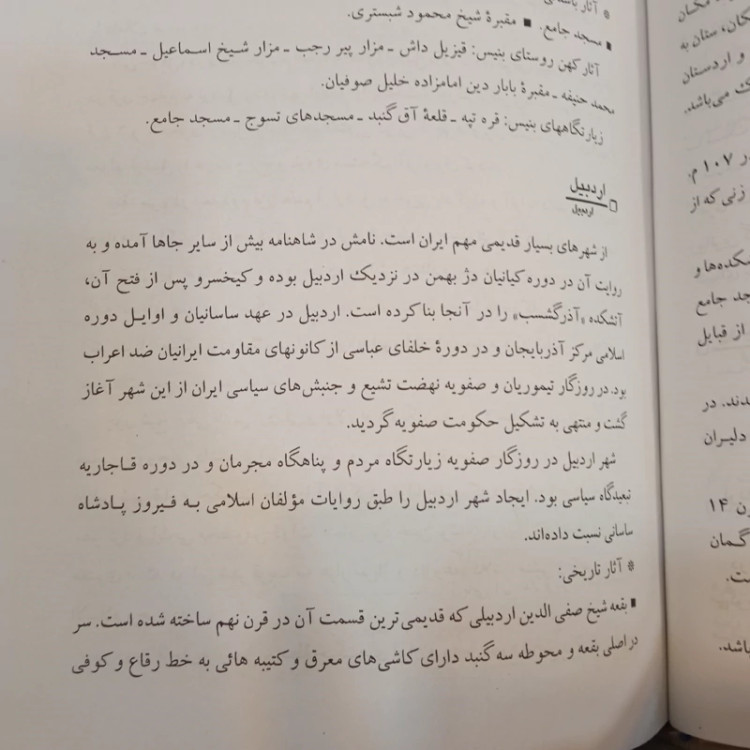 * آثار
■ مسجد جامع. ■ مقبرهٔ شیخ محمود شبستری.
آثار کهن روستای بنیس: قیزیل داش ـ مزار پیر رجب ـ مزار شیخ اسماعیل ـ مسجد
محمد حنیفه ـ مقبرهٔ بابار دین امامزاده خلیل صوفیان.
زیارتگاههای بنیس: قره تپه ـ قلعهٔ آق گنبد ـ مسجدهای تسوج ـ مسجد جامع.
□ اردبیل
اردبیل
از شهرهای بسیار قدیمی مهم ایران است. نامش در شاهنامه بیش از سایر جاها آمده و به
روایت آن در دوره کیانیان دژ بهمن در نزدیک اردبیل بوده و کیخسرو پس از فتح آن،
آتشکده «آذرگشسب» را در آنجا بنا کرده است. اردبیل در عهد ساسانیان و اوایل دوره
اسلامی مرکز آذربایجان و در دورهٔ خلفای عباسی از کانونهای مقاومت ایرانیان ضد اعراب
بود. در روزگار تیموریان و صفویه نهضت تشیع و جنبش‌های سیاسی ایران از این شهر آغاز
گشت و منتهی به تشکیل حکومت صفویه گردید.
شهر اردبیل در روزگار صفویه زیارتگاه مردم و پناهگاه مجرمان و در دوره قاجاریه
تبعیدگاه سیاسی بود. ایجاد شهر اردبیل را طبق روایات مؤلفان اسلامی به فیروز پادشاه
ساسانی نسبت داده‌اند.
* آثار تاریخی:
■ بقعه شیخ صفی الدین اردبیلی که قدیمی‌ترین قسمت آن در قرن نهم ساخته شده است. سر
در اصلی بقعه و محوطه سه گنبد دارای کاشی‌های معرق و کتیبه هائی به خط رقاع و کوفی
مکان
ستان به
و اردستان
می‌باشد.
در ۱۰۷ م.
زنی که از
شکده‌ها و
جد جامع
از قبایل
دند. در
دلیران
رن ۱۴
گمان
ست.
باشد.